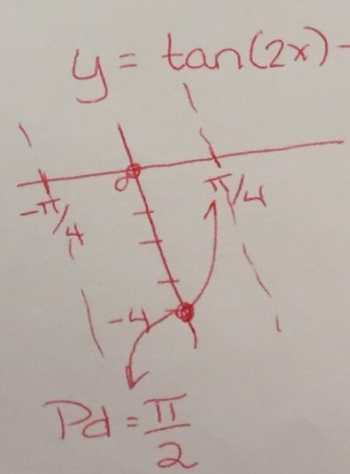 y = tan(2x) -
0
-π/4
π/4
-4
Pd = π/2